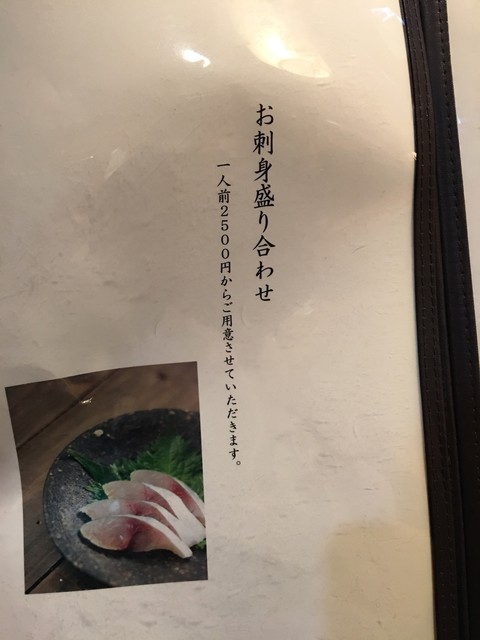 お刺身盛り合わせ
一人前2500円からご用意させていただきます。